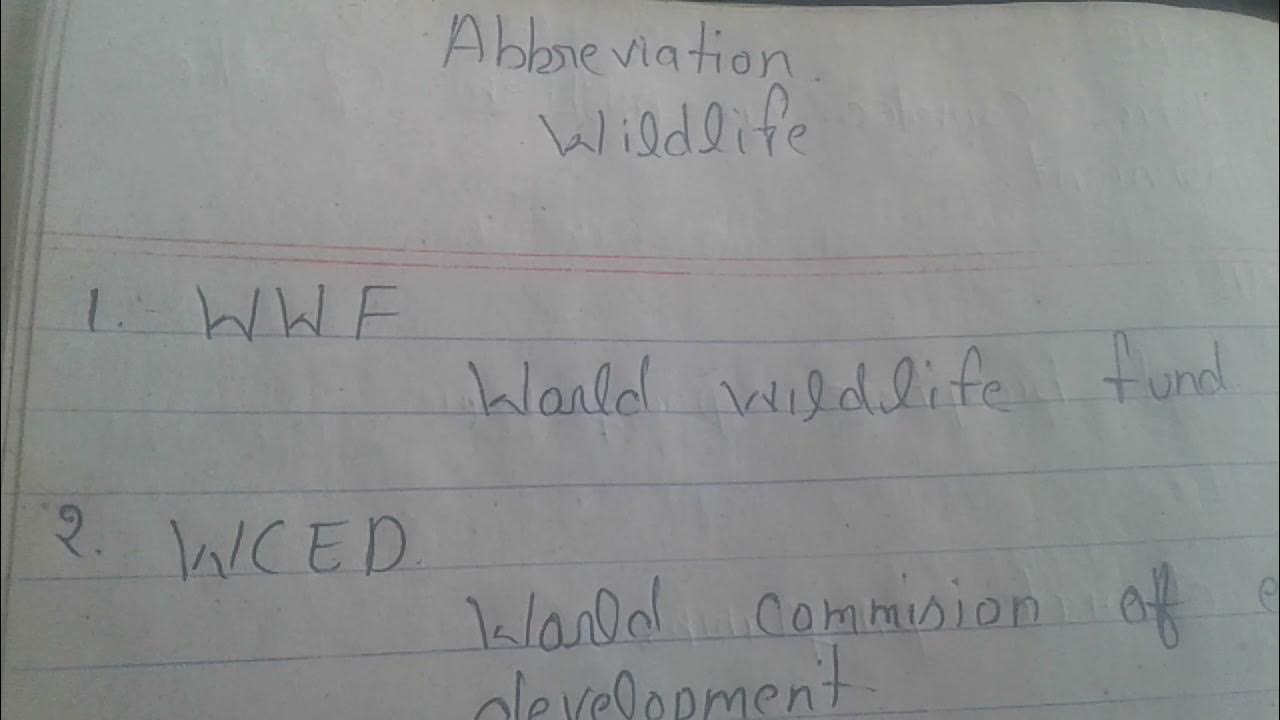 Abbreviation.
Wildlife
1. WWF
World wildlife fund
2. WCED.
World commision of
development.